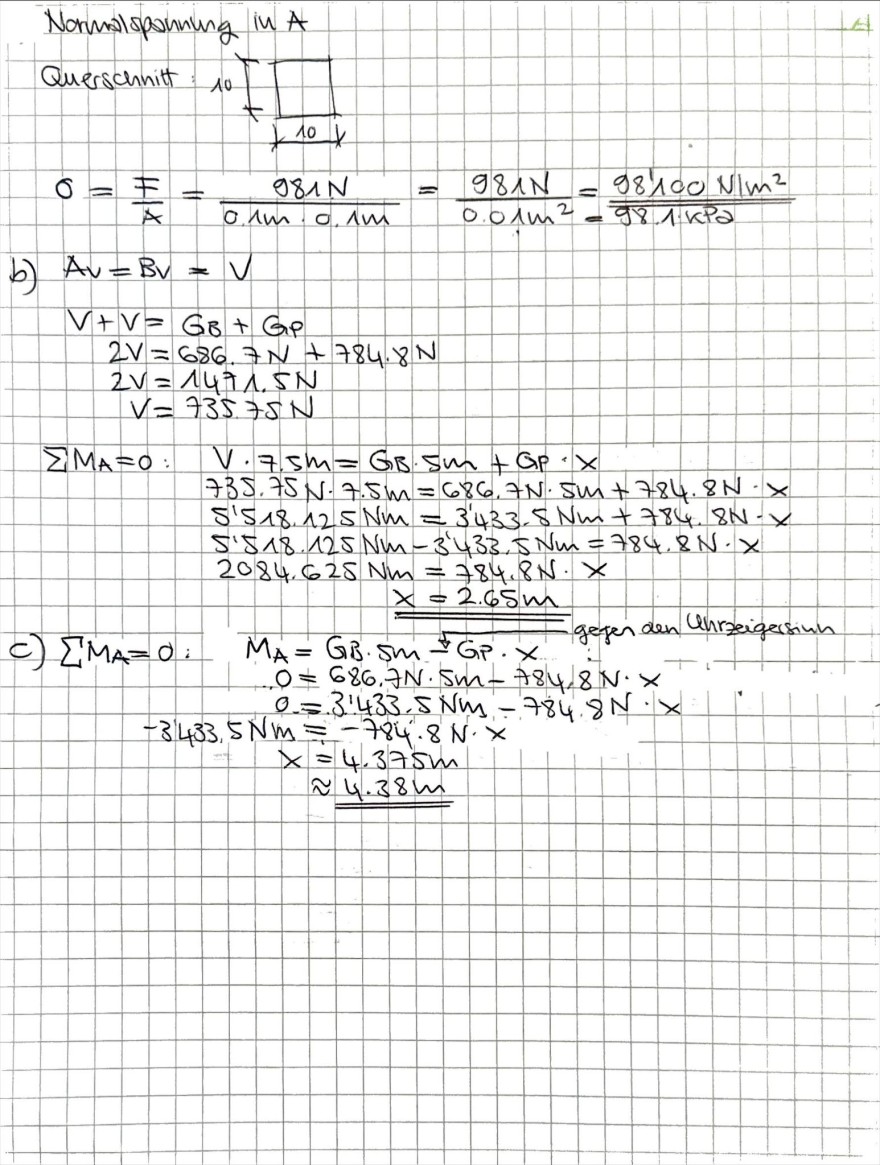 Normalspannung in A
Querschnitt: 10
10
σ = F/A = 981N/(0.1m · 0.1m) = 981N/0.01m² = 98'100 N/m²
= 98.1 kPa
b) Av = Bv = V
V + V = GB + GP
2V = 686.7N + 784.8N
2V = 1471.5N
V = 735.75N
ΣMA=0: V · 7.5m = GB · 5m + GP · x
735.75N · 7.5m = 686.7N · 5m + 784.8N · x
5'518.125Nm = 3'433.5Nm + 784.8N · x
5'518.125Nm - 3'433.5Nm = 784.8N · x
2084.625Nm = 784.8N · x
x = 2.65m
gegen den Uhrzeigersinn
c) ΣMA=0: MA = GB · 5m - GP · x
0 = 686.7N · 5m - 784.8N · x
0 = 3'433.5Nm - 784.8N · x
-3'433.5Nm = -784.8N · x
x = 4.375m
≈ 4.38m